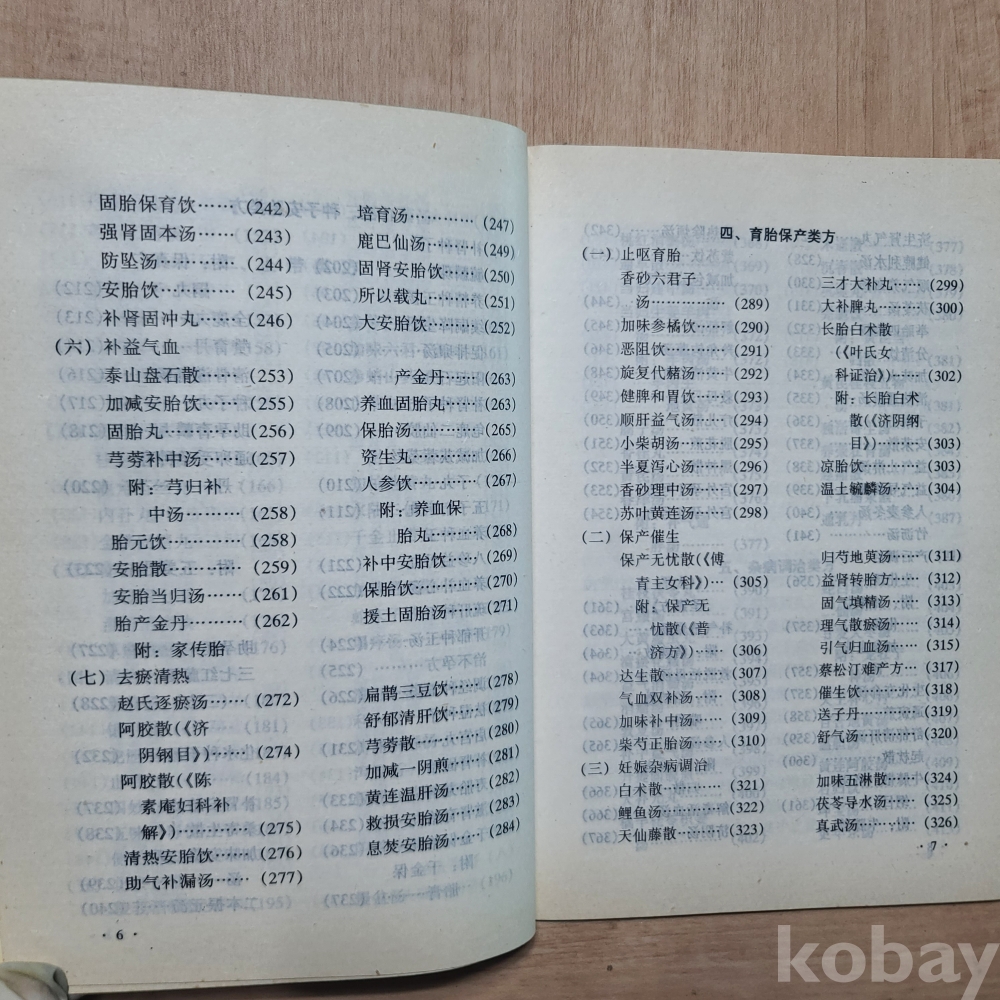 固胎保育饮……(242)
强肾固本汤……(243)
防坠汤…………(244)
安胎饮…………(245)
补肾固冲丸……(246)
(六) 补益气血
泰山盘石散……(253)
加减安胎饮……(255)
固胎丸…………(256)
芎䓖补中汤……(257)
附：芎归补
中汤……(258)
胎元饮…………(258)
安胎散…………(259)
安胎当归汤……(261)
胎产金丹………(262)
附：家传胎
(七) 去瘀清热
赵氏逐瘀汤……(272)
阿胶散(《济
阴钢目》)……(274)
阿胶散(《陈
素庵妇科补
解》)…………(275)
清热安胎饮……(276)
助气补漏汤……(277)
培育汤…………(247)
鹿巴仙汤………(249)
固肾安胎饮……(250)
所以载丸………(251)
大安胎饮………(252)
产金丹……(263)
养血固胎丸……(263)
保胎汤…………(265)
资生丸…………(266)
人参饮…………(267)
附：养血保
胎丸……(268)
补中安胎饮……(269)
保胎饮…………(270)
援土固胎汤……(271)
扁鹊三豆饮……(278)
舒郁清肝饮……(279)
芎䓖散…………(280)
加减一阴煎……(281)
黄连温肝汤……(282)
救损安胎汤……(283)
息焚安胎汤……(284)
· 6 ·
四、育胎保产类方
(一) 止呕育胎
香砂六君子
汤…………(289)
加味参橘饮……(290)
恶阻饮…………(291)
旋复代赭汤……(292)
健脾和胃饮……(293)
顺肝益气汤……(294)
小柴胡汤………(295)
半夏泻心汤……(296)
香砂理中汤……(297)
苏叶黄连汤……(298)
三才大补丸……(299)
大补脾丸………(300)
长胎白术散
(《叶氏女
科证治》)…(302)
附：长胎白术
散(《济阴纲
目》)……(303)
凉胎饮…………(303)
温土毓麟汤……(304)
(二) 保产催生
保产无忧散(《傅
青主女科》)…(305)
附：保产无
忧散(《普
济方》)…(306)
达生散…………(307)
气血双补汤……(308)
加味补中汤……(309)
柴芍正胎汤……(310)
归芍地萸汤……(311)
益肾转胎方……(312)
固气填精汤……(313)
理气散瘀汤……(314)
引气归血汤……(315)
蔡松汀难产方…(317)
催生饮…………(318)
送子丹…………(319)
舒气汤…………(320)
(三) 妊娠杂病调治
白术散…………(321)
鲤鱼汤…………(322)
天仙藤散………(323)
加味五淋散……(324)
茯苓导水汤……(325)
真武汤…………(326)
· 7 ·
kobay